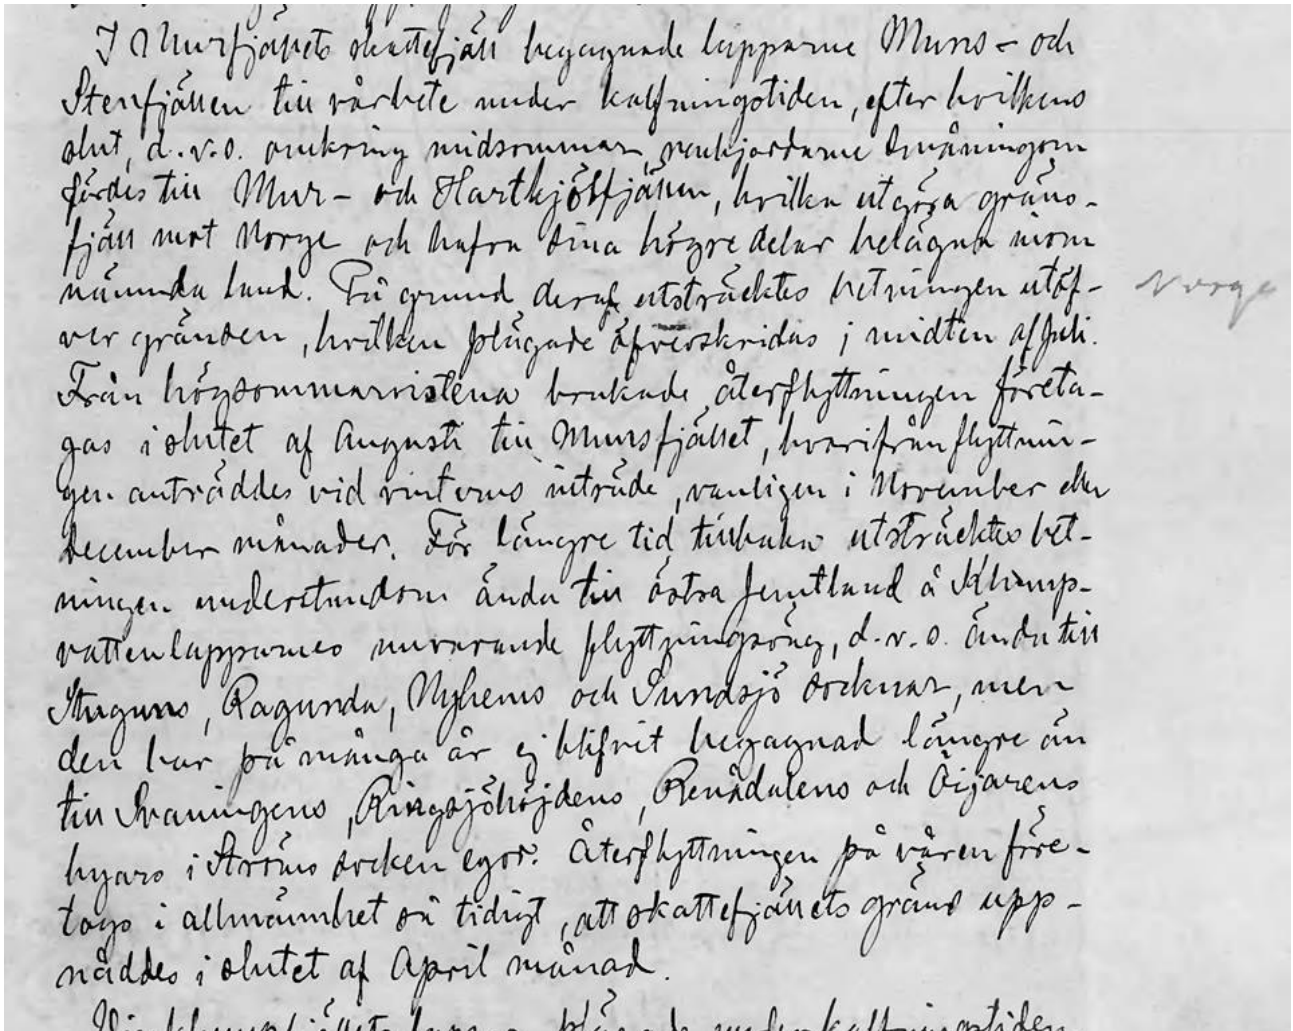 I Murfjällets skattefjäll begagnade lapparne Murs- och
Stenfjällen till vårbete under kalfningstiden, efter hvilkens
slut, d.v.s. omkring midsommar, renhjordarne småningom
fördes till Mur- och Hartkjölfjällen, hvilka utgöra gräns-
fjäll mot Norge och hafva sina högre delar belägna inom
nämnda land. På grund deraf utsträcktes betningen utöf-
ver gränsen, hvilken plägade öfverskridas i midten af Juli.
Norge
Från högsommarvistena brukade återflyttningen företa-
gas i slutet af Augusti till Mursfjället, hvarifrån flyttnin-
gen anträddes vid vinterns inträde, vanligen i November eller
December månader. För längre tid tillbaka utsträcktes bet-
ningen understundom ända till östra Jemtland å Klump-
vattenlapparnes nuvarande flyttningsväg, d.v.s. ända till
Stuguns, Ragunda, Nyhems och Sundsjö socknar, men
den har på många år ej blifvit begagnad längre än
till Svaningens, Ringsjöhöjdens, Renådalens och Öijarens
byars i Ströms socken egor. Återflyttningen på våren före-
togs i allmänhet så tidigt, att skattefjällets gräns upp-
nåddes i slutet af April månad.
plägade under kalfningstiden